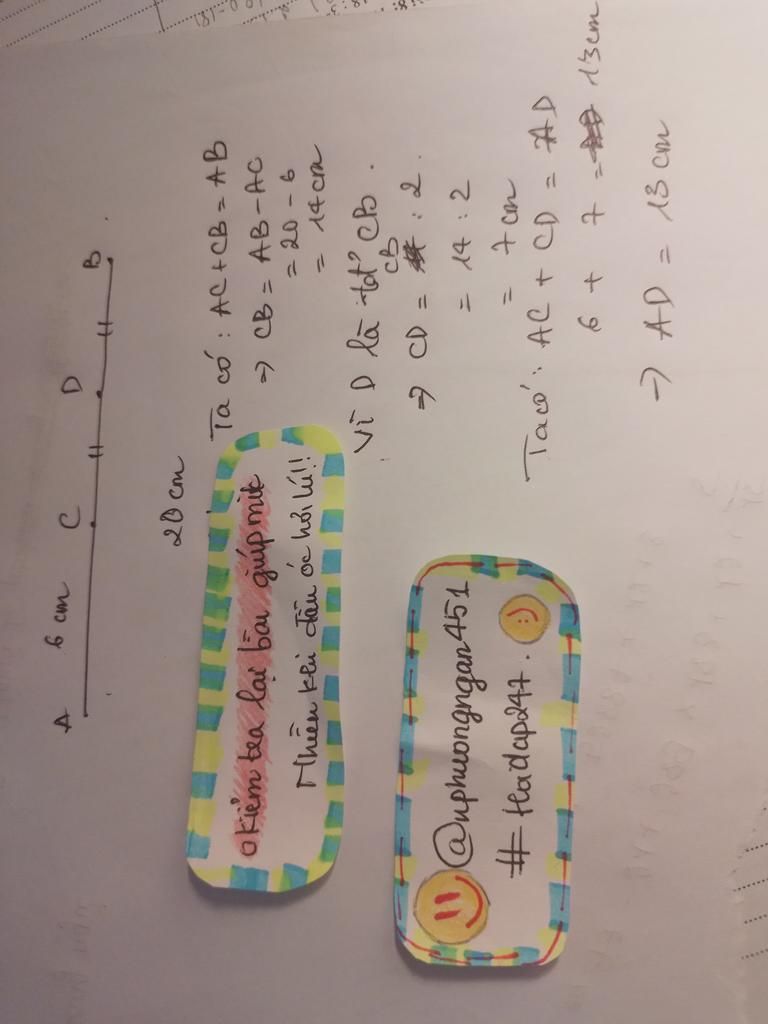 A 6 cm C D B
20 cm
Ta có: AC + CB = AB
=> CB = AB - AC
= 20 - 6
= 14 cm
Vì D là tđ' CB.
CB
=> CD = : 2.
= 14 : 2
= 7 cm
Ta có: AC + CD = AD
6 + 7 = 13 cm
-> AD = 13 cm
kiểm tra lại bài giúp mik
Nhiên khi đầu óc hơi lú!!
@nphuongngan451
# Hoidap247.